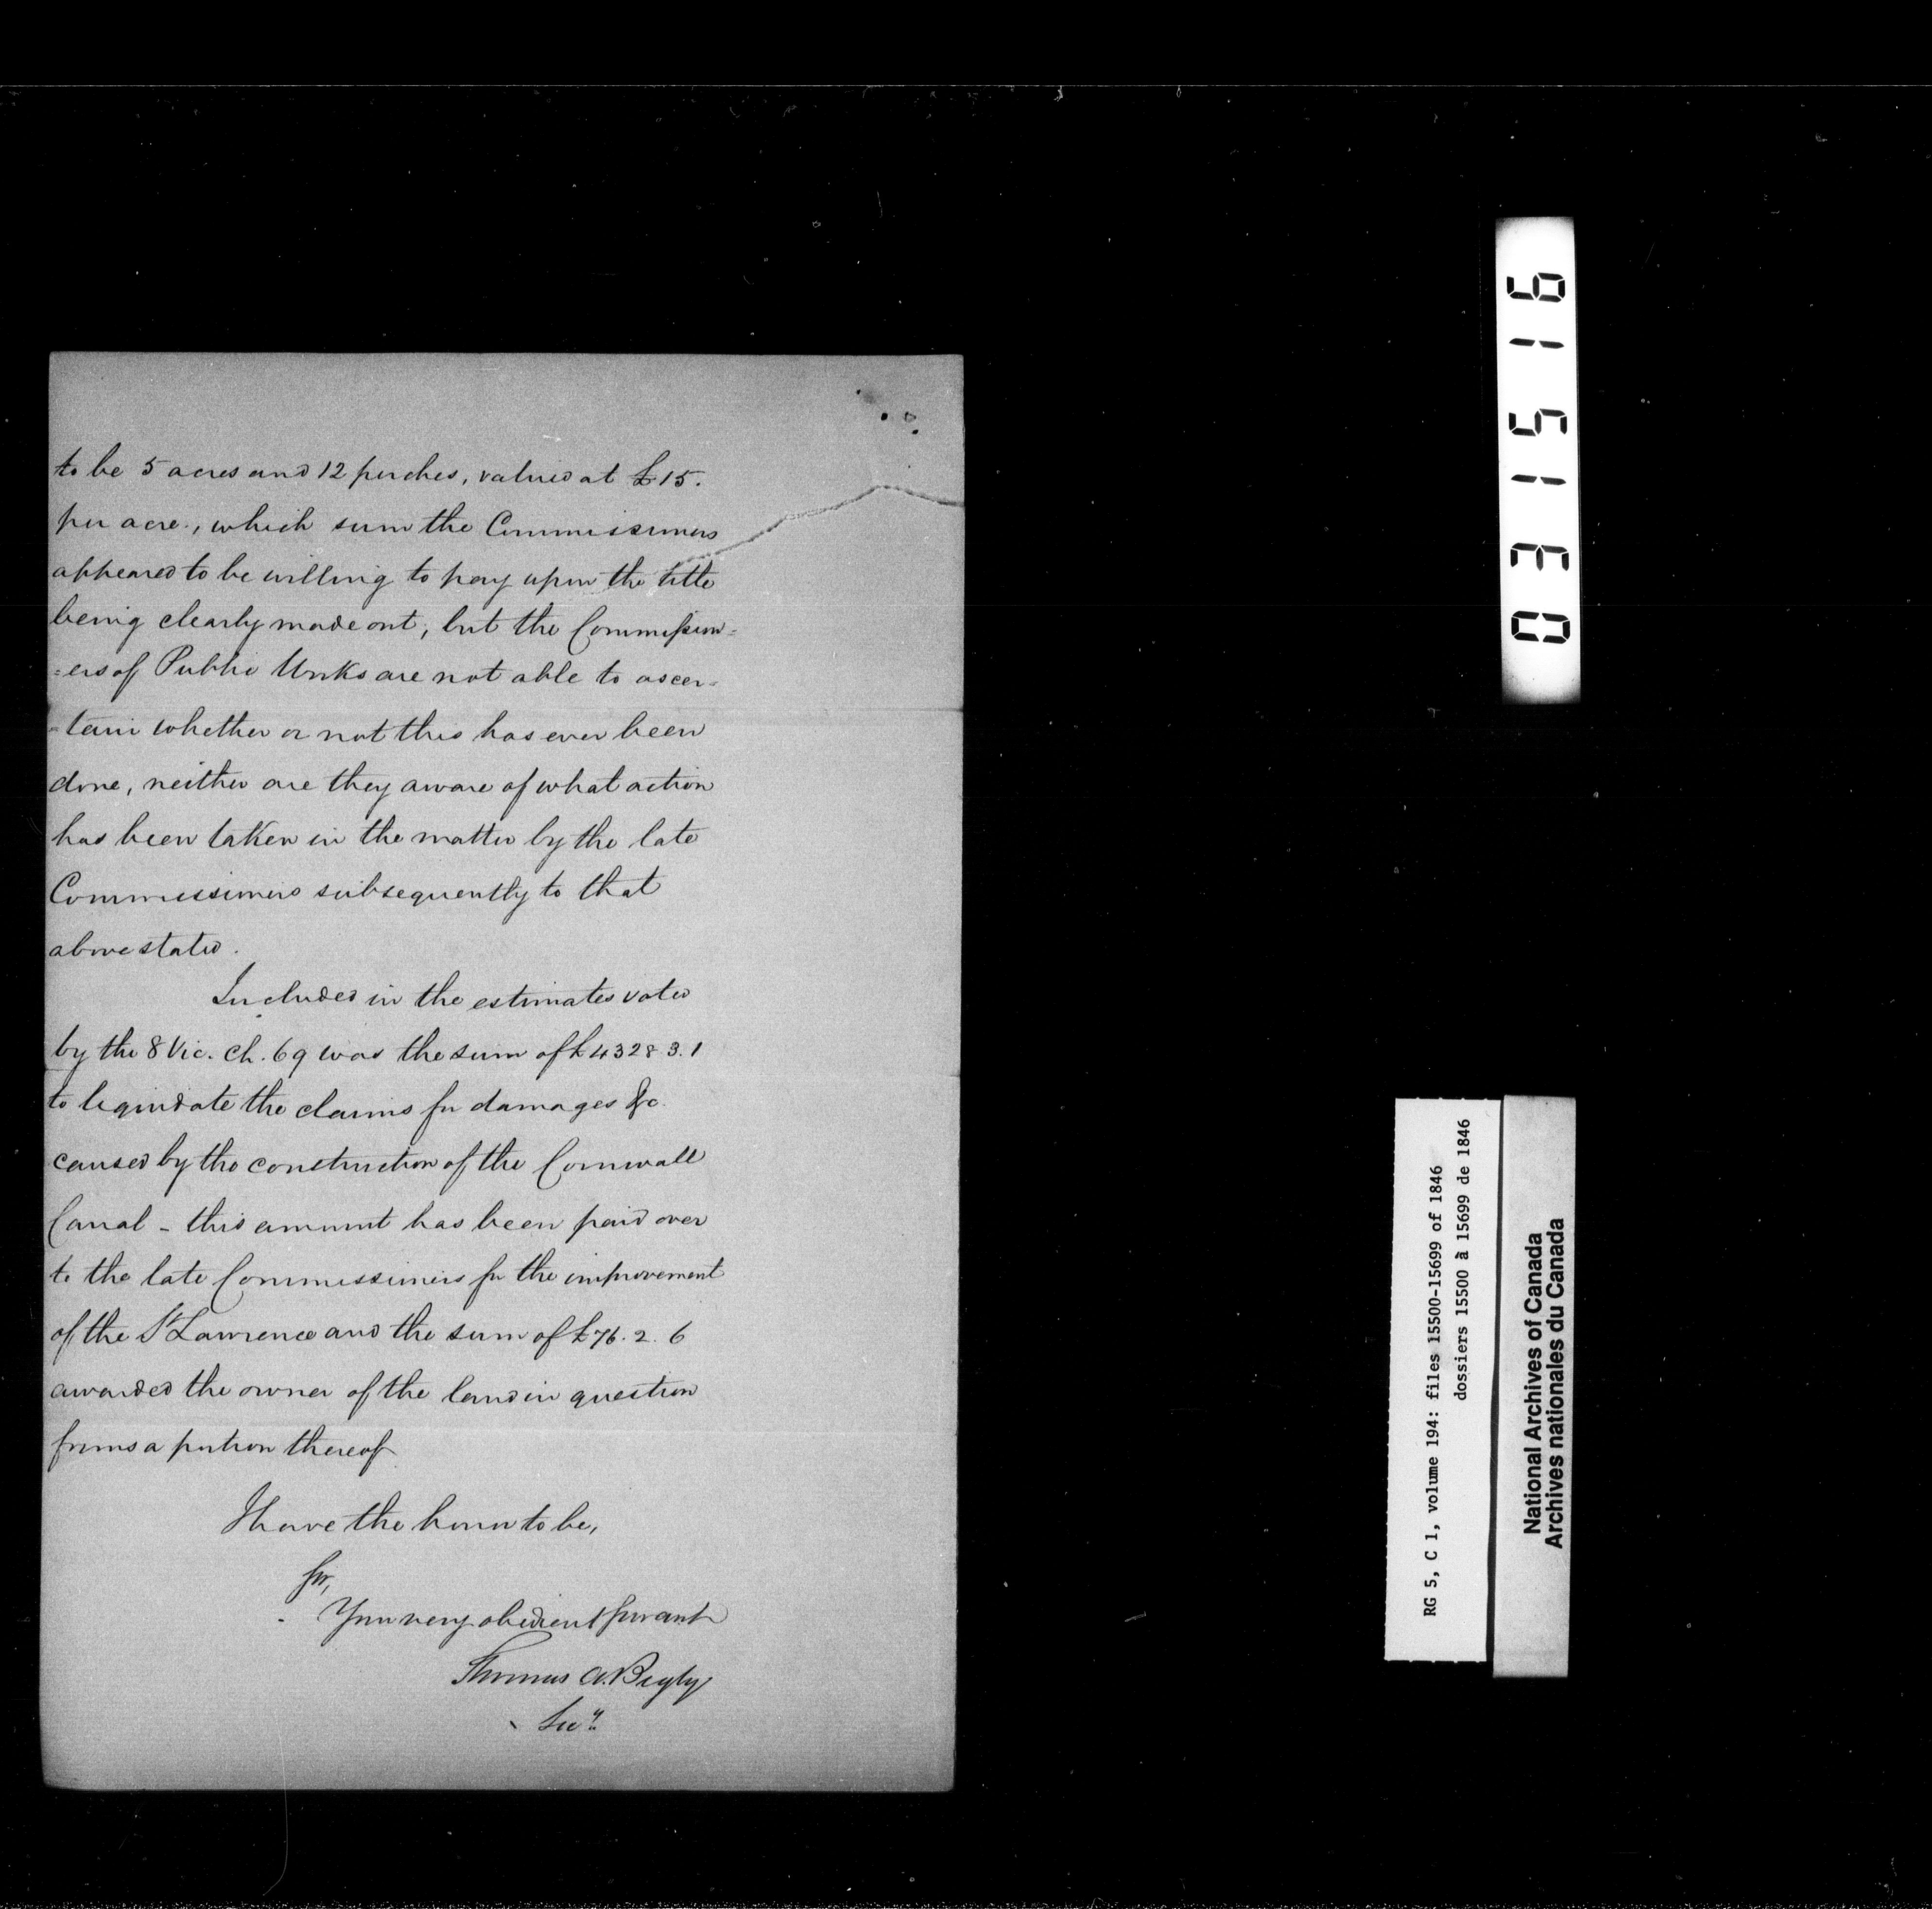 to be 5 acres and 12 perches, valued at £15.
per acre, which sum the Commissioners
appeared to be willing to pay upon the title
being clearly made out, but the Commission=
=ers of Public Works are not able to ascer=
=tain whether or not this has ever been
done, neither are they aware of what action
has been taken in the matter by the late
Commissioners subsequently to that
above stated.
Included in the estimates voted
by the 8 Vic. Ch. 69 was the sum of £4328.3.1
to liquidate the claims for damages &c
caused by the construction of the Cornwall
Canal - this amount has been paid over
to the late Commissioners for the improvement
of the St Lawrence and the sum of £76.2.6
awarded the owner of the land in question
forms a portion thereof
I have the honor to be,
Sir,
Your very obedient Servant
Thomas A. Begly
Secy
031516
RG 5, C 1, volume 194: files 15500-15699 of 1846
dossiers 15500 à 15699 de 1846
National Archives of Canada
Archives nationales du Canada